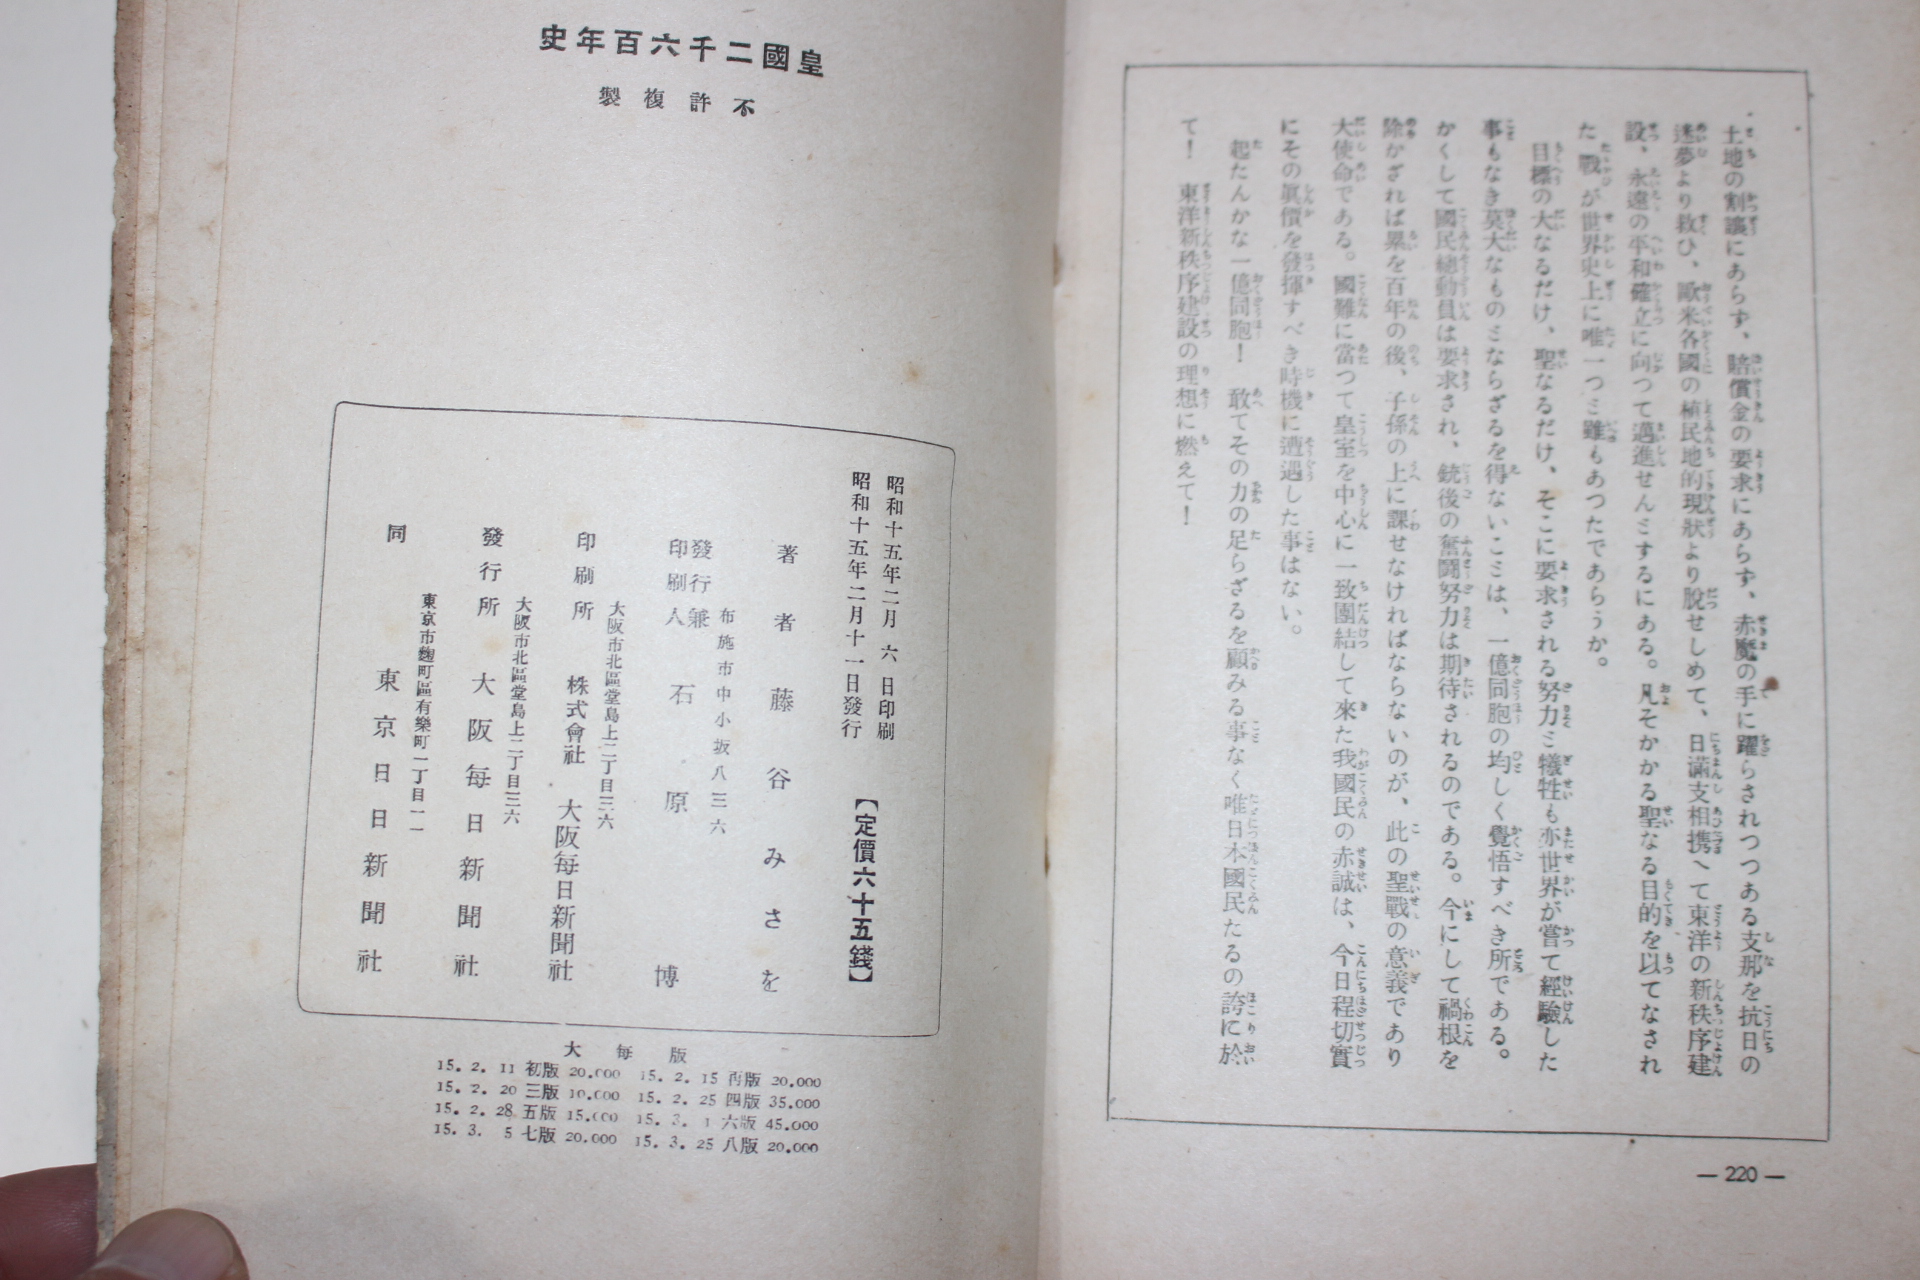 土地の割讓にあらず、賠償金の要求にあらず、赤魔の手に躍らされつつある支那を抗日の
迷夢より救ひ、歐米各國の植民地的現狀より脫せしめて、日滿支相携へて東洋の新秩序建
設、永遠の平和確立に向つて邁進せんとするにある。凡そかかる聖なる目的を以てなされ
た戰が世界史上に唯一つと雖もあつたであらうか。
目標の大なるだけ、聖なるだけ、そこに要求される努力と犧牲も亦世界が嘗て經驗した
事もなき莫大なものとならざるを得ないことは、一億同胞の均しく覺悟すべき所である。
かくして國民總動員は要求され、銃後の奮鬪努力は期待されるのである。今にして禍根を
除かざれば累を百年の後、子孫の上に課せなければならないのが、此の聖戰の意義であり
大使命である。國難に當つて皇室を中心に一致團結して來た我國民の赤誠は、今日程切實
にその眞價を發揮すべき時機に遭遇した事はない。
起たんかな一億同胞！　敢てその力の足らざるを顧みる事なく唯日本國民たるの誇に於
て！　東洋新秩序建設の理想に燃えて！
— 220 —
皇國二千六百年史
不許複製
昭和十五年二月六日印刷
昭和十五年二月十一日發行
【定價六十五錢】
著者　藤谷みさを
布施市中小坂八三六
發行兼印刷人　石原博
大阪市北區堂島上二丁目三六
印刷所　株式會社　大阪每日新聞社
大阪市北區堂島上二丁目三六
發行所　大阪每日新聞社
東京市麴町區有樂町一丁目一一
同　東京日日新聞社
大每版
15. 2. 11 初版 20.000　15. 2. 15 再版 20.000
15. 2. 20 三版 10.000　15. 2. 25 四版 35.000
15. 2. 28 五版 15.000　15. 3. 1 六版 45.000
15. 3. 5 七版 20.000　15. 3. 25 八版 20.000